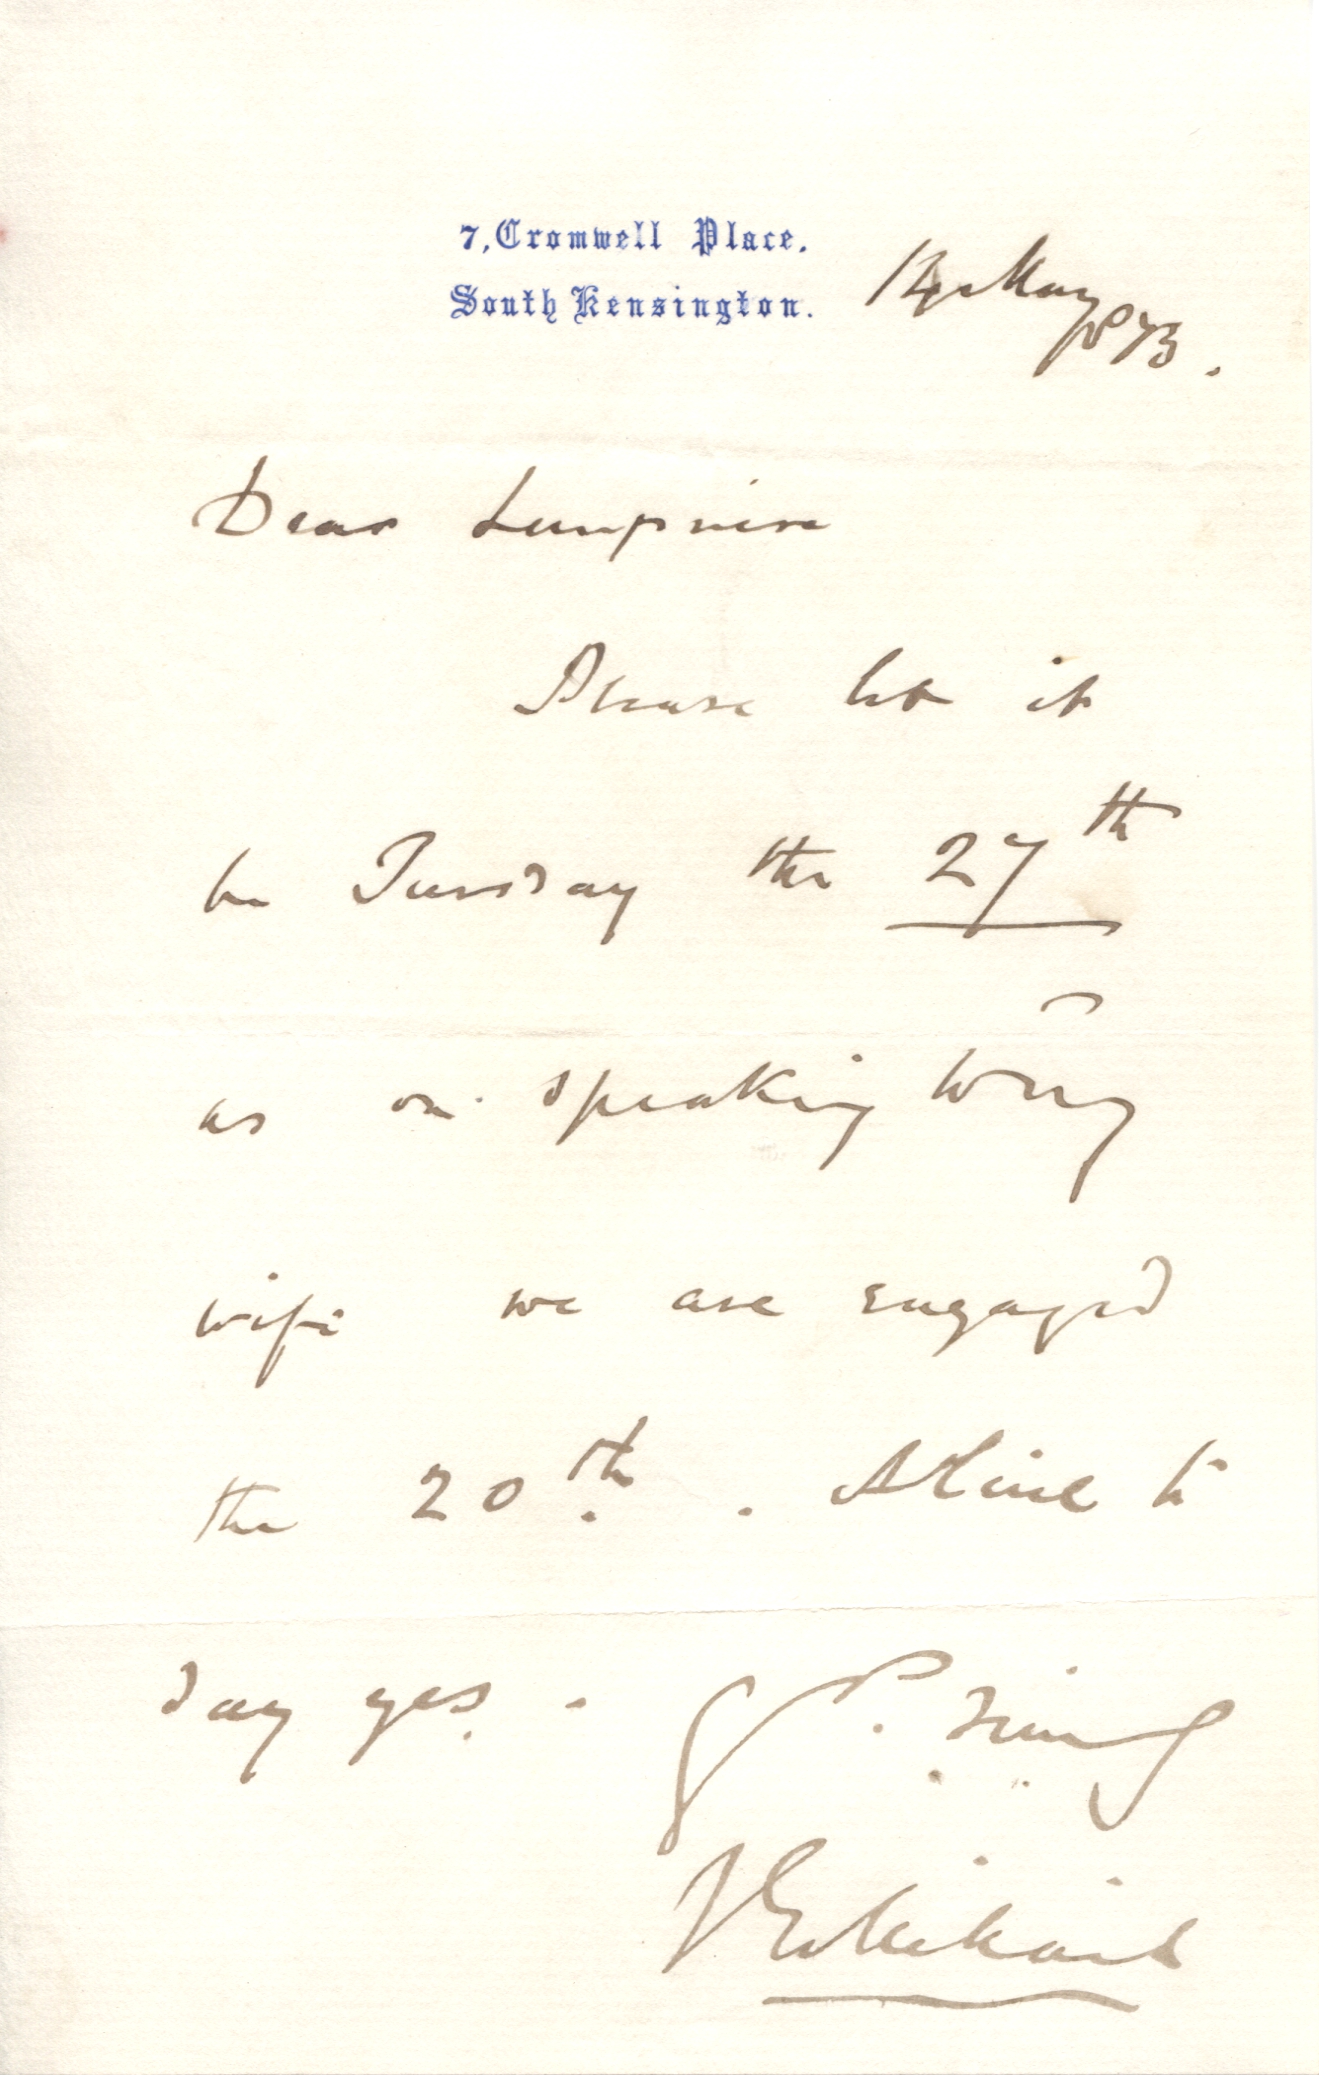 7, Cromwell Place.
South Kensington.
14 May
1873.
Dear
Please let it
be Tuesday the 27th
as on speaking to my
wife we are engaged
the 20th. to
say yes.
J E Millais